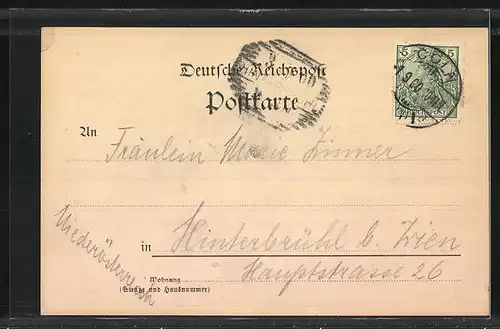 Deutsche Reichspost
Postkarte
5 5
CÖLN
An Fräulein Marie Zinner
in Hinterbrühl b. Wien
Hauptstrasse 26
Niederösterreich
Wohnung
(Straße und Hausnummer)